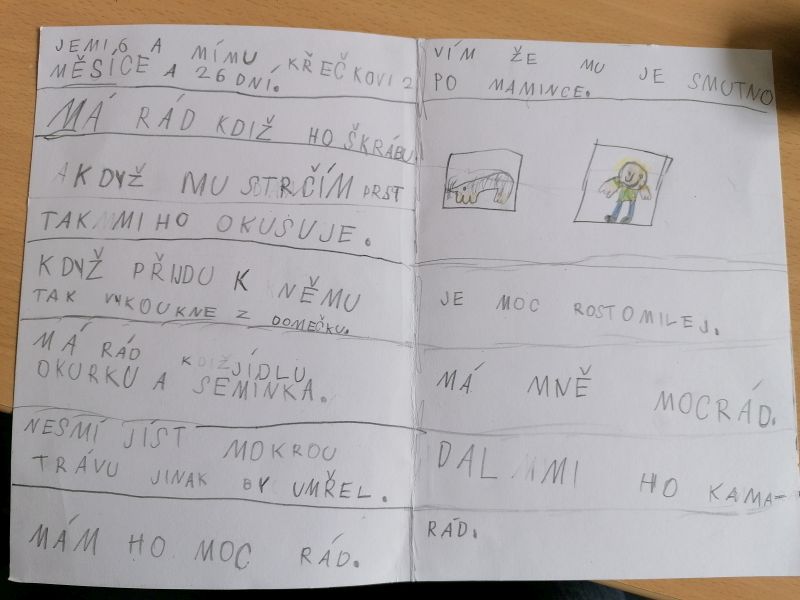 JEMI 6 A MÍMU KŘEČKOVI 2
MĚSÍCE A 26 DNÍ.
MÁ RÁD KDIŽ HO ŠKRÁBU
A KDYŽ MU STRČÍM PRST
TAK MI HO OKUSUJE.
KDYŽ PŘIJDU K NĚMU
TAK VYKOUKNE Z DOMEČKU.
MÁ RÁD KDIŽ JÍDLU
OKURKU A SEMÍNKA.
NESMÍ JÍST MOKROU
TRÁVU JINAK BY UMŘEL.
MÁM HO MOC RÁD.
VÍM ŽE MU JE SMUTNO
PO MAMINCE.
JE MOC ROSTOMILEJ.
MÁ MNĚ MOCRÁD.
DAL MI HO KAMA-
RÁD.